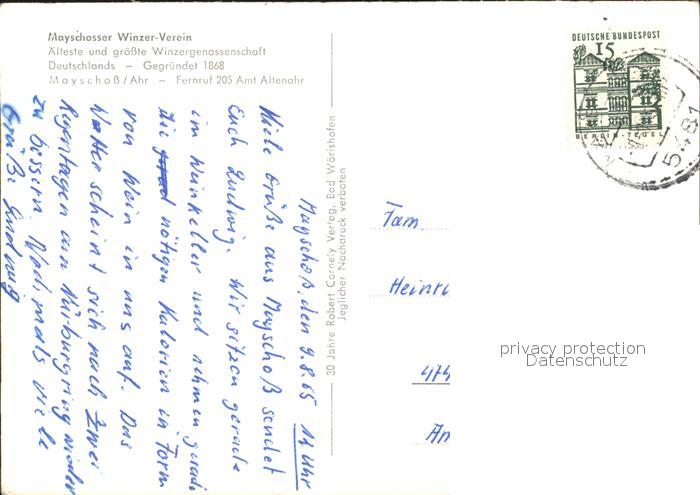 Mayschosser Winzer-Verein
Älteste und größte Winzergenossenschaft
Deutschlands – Gegründet 1868
Mayschoß/Ahr – Fernruf 205 Amt Altenahr
Mayschoß, den 9.8.65 12 Uhr
Viele Grüße aus Mayschoß sendet
Euch Ludwig. Wir sitzen gerade
im Weinkeller und nehmen gerade
die nötigen Kalorien in Form
von Wein in uns auf. Das
Wetter scheint sich nach zwei
Regentagen am Nürburgring wieder
zu bessern. Nochmals viele
Grüße Ludwig
30 Jahre Robert Cornely Verlag, Bad Wörishofen
Jeglicher Nachdruck verboten
DEUTSCHE BUNDESPOST
15
BERLIN-TEGEL
5481
Fam.
Heinri
474
An
privacy protection
Datenschutz